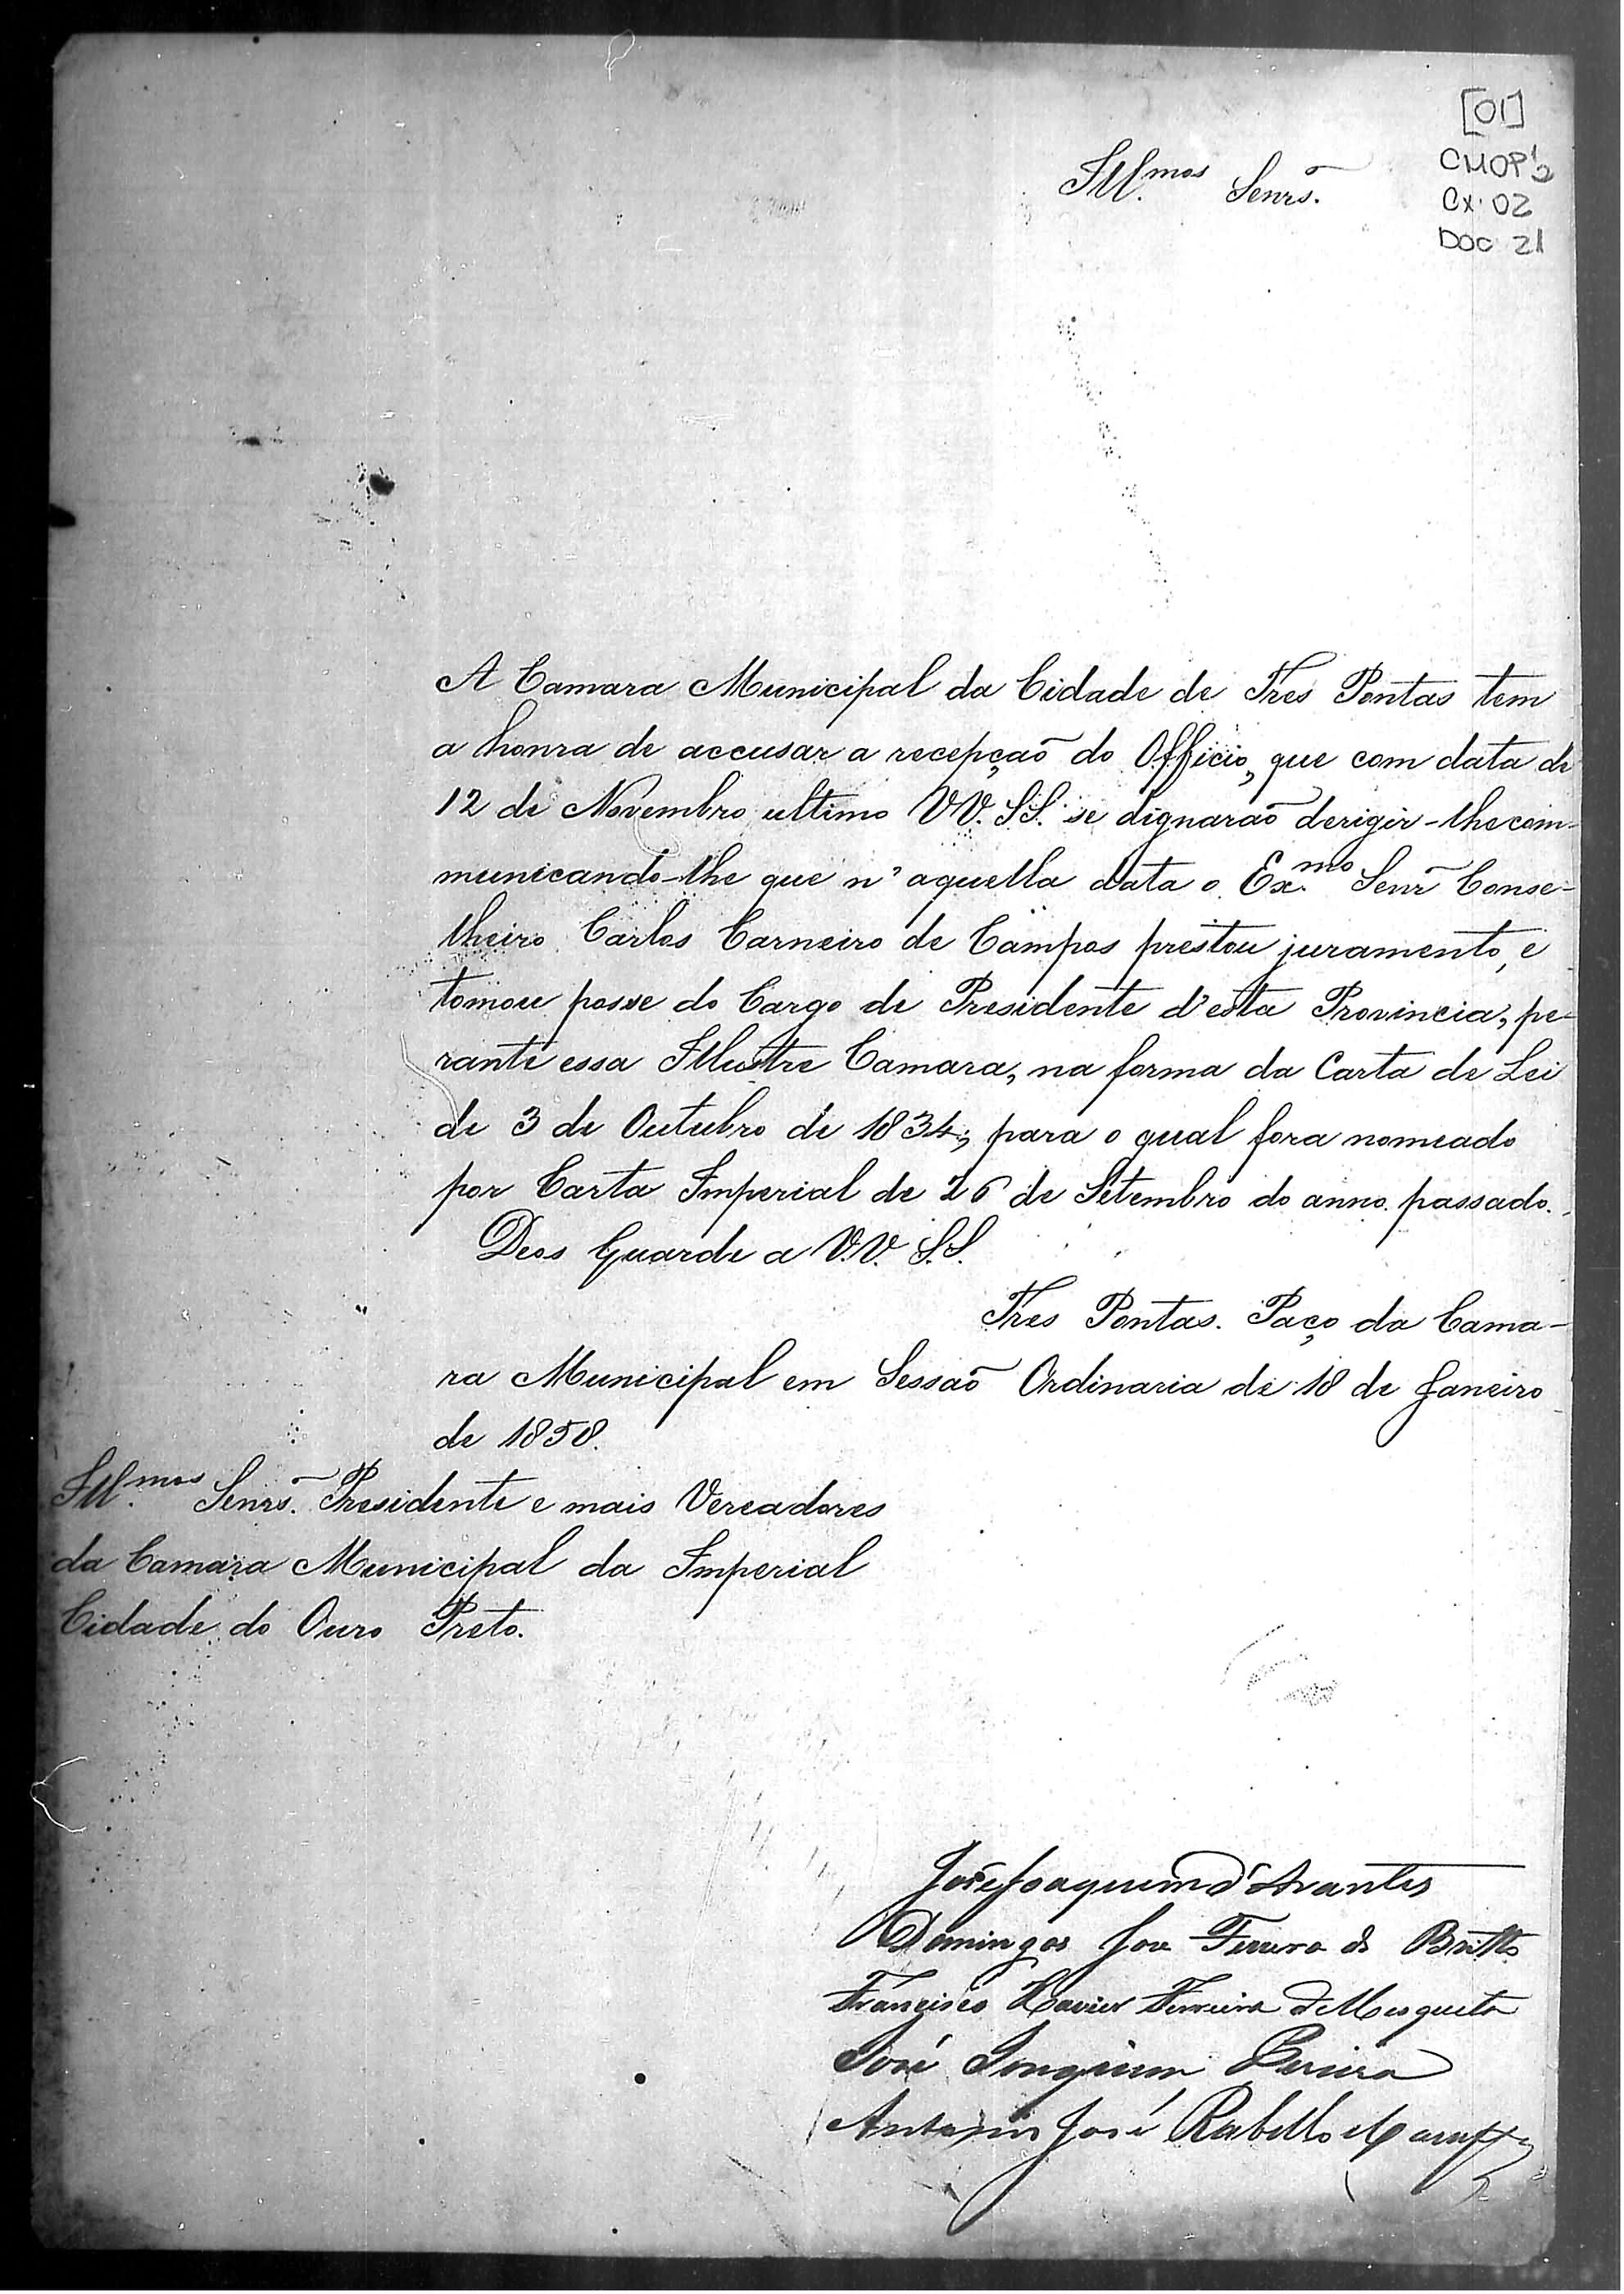 [01]
CMOP
Cx. 02
DOC 21
Ill.mos Senrs.
A Camara Municipal da Cidade de Tres Pontas tem
a honra de accusar a recepçaõ do Officio, que com data de
12 de Novembro ultimo VV. SS. se dignaraõ derigir-lhe com-
municando-lhe que n'aquella data o Ex.mo Senr Conse-
lheiro Carlos Carneiro de Campos prestou juramento, e
tomou posse do Cargo de Presidente d'esta Provincia, pe-
rante essa Illustre Camara, na forma da Carta de Lei
de 3 de Outubro de 1834; para o qual fora nomeado
por Carta Imperial de 26 de Setembro do anno passado.
Deos Guarde a V.V. S.S.
Tres Pontas. Paço da Cama-
ra Municipal em Sessaõ Ordinaria de 18 de Janeiro
de 1858.
Ill.mos Senrs. Presidente e mais Vereadores
da Camara Municipal da Imperial
Cidade do Ouro Preto.
José Joaquim d'Arantes
Domingos Jose Ferreira de Britto
Francisco Xavier Ferreira de Mesquita
José Joaquim Pereira
Antonio José Rabello e Campos